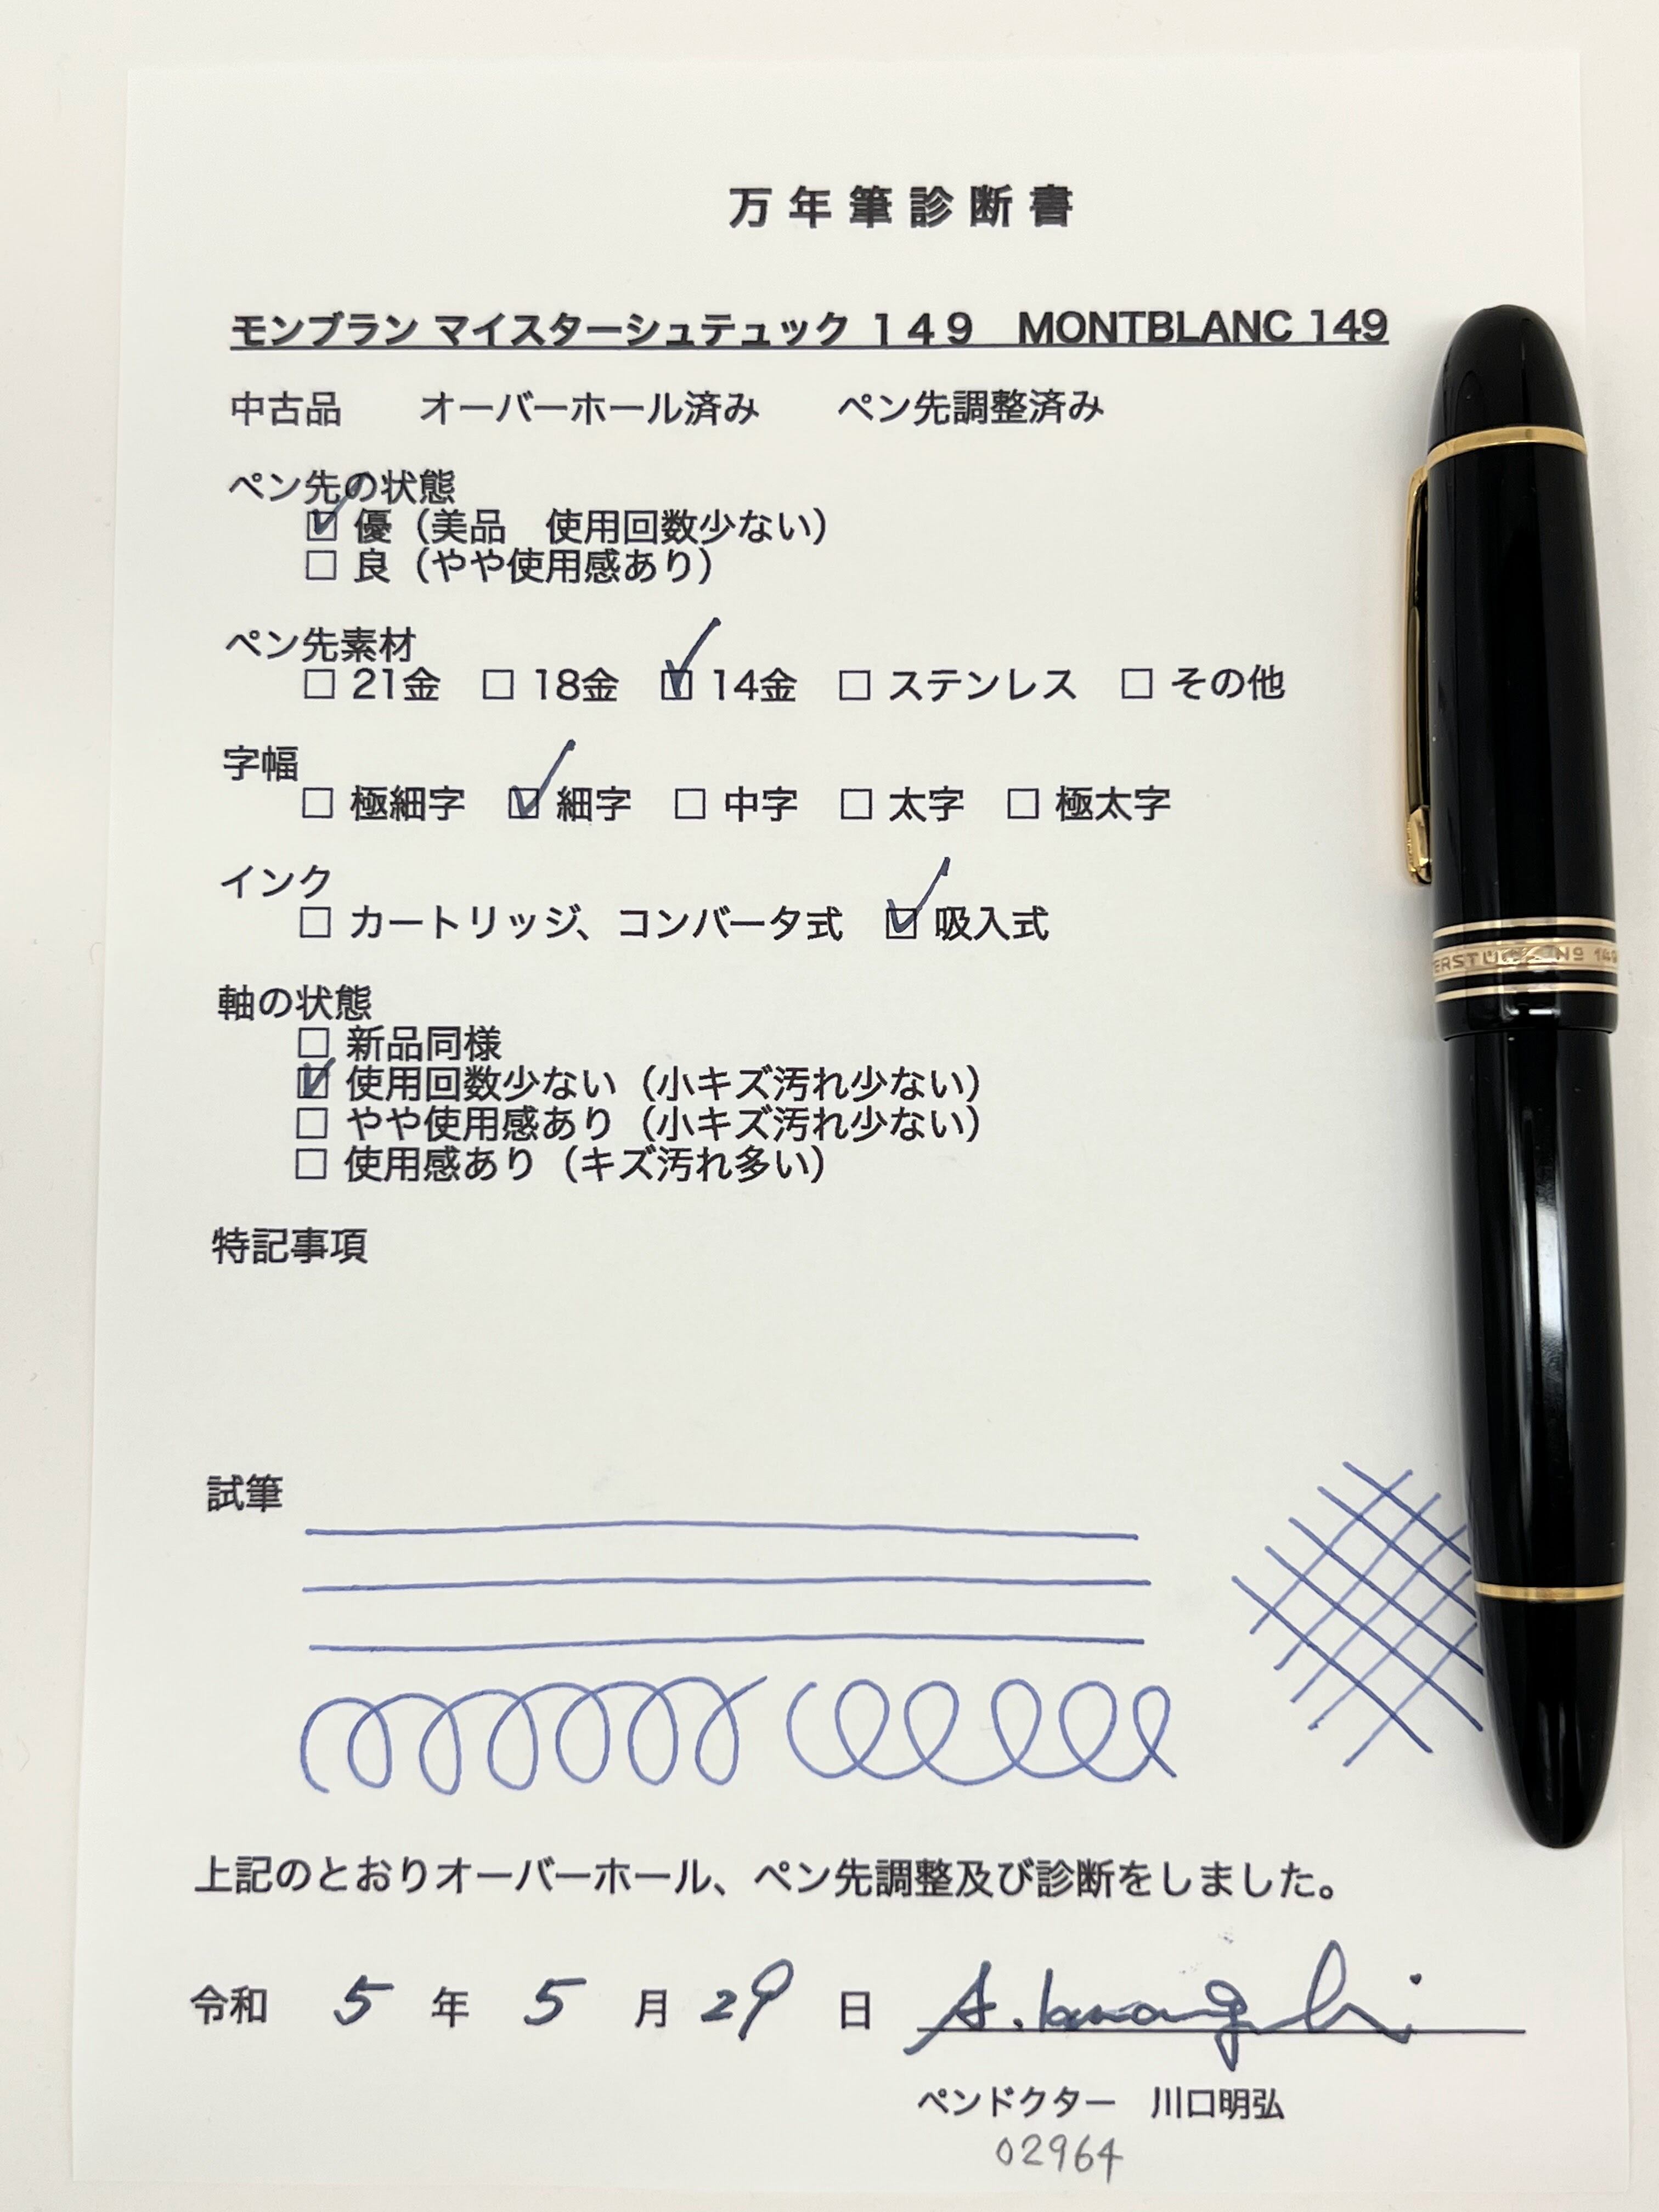 万年筆診断書
モンブラン マイスターシュテュック １４９　MONTBLANC 149
中古品　　オーバーホール済み　　ペン先調整済み
ペン先の状態
☑ 優（美品　使用回数少ない）
□ 良（やや使用感あり）
ペン先素材
□ 21金　□ 18金　☑ 14金　□ ステンレス　□ その他
字幅
□ 極細字　☑ 細字　□ 中字　□ 太字　□ 極太字
インク
□ カートリッジ、コンバータ式　☑ 吸入式
軸の状態
□ 新品同様
☑ 使用回数少ない（小キズ汚れ少ない）
□ やや使用感あり（小キズ汚れ少ない）
□ 使用感あり（キズ汚れ多い）
特記事項
試筆
上記のとおりオーバーホール、ペン先調整及び診断をしました。
令和 5 年 5 月 29 日 A. Kawaguchi
ペンドクター　川口明弘
02964
ERSTÜCK Nº 149